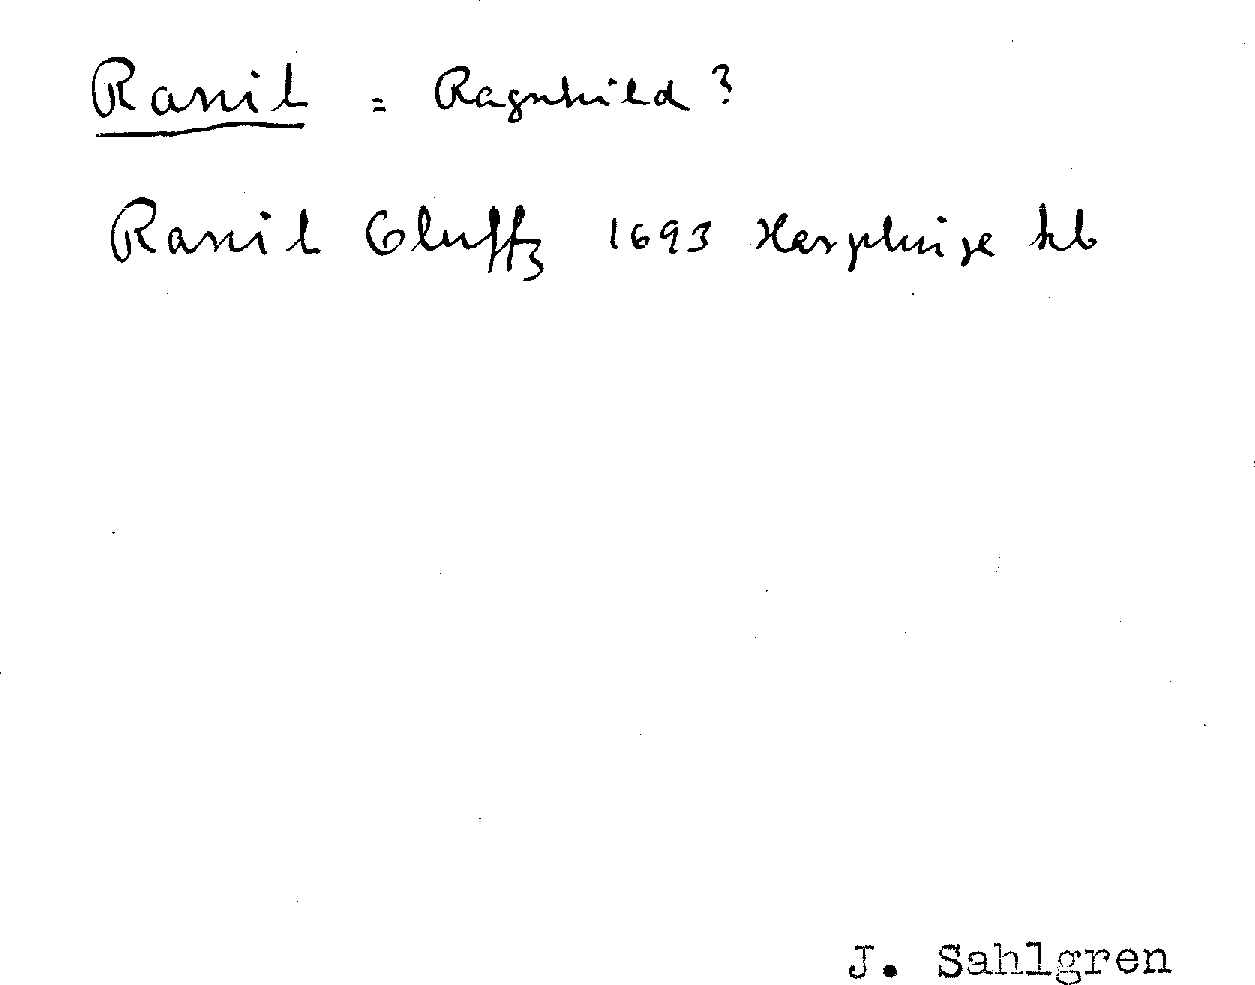 Ranil = Ragnhild?
Ranil Oluffz 1693 Harplinge kb
J. Sahlgren